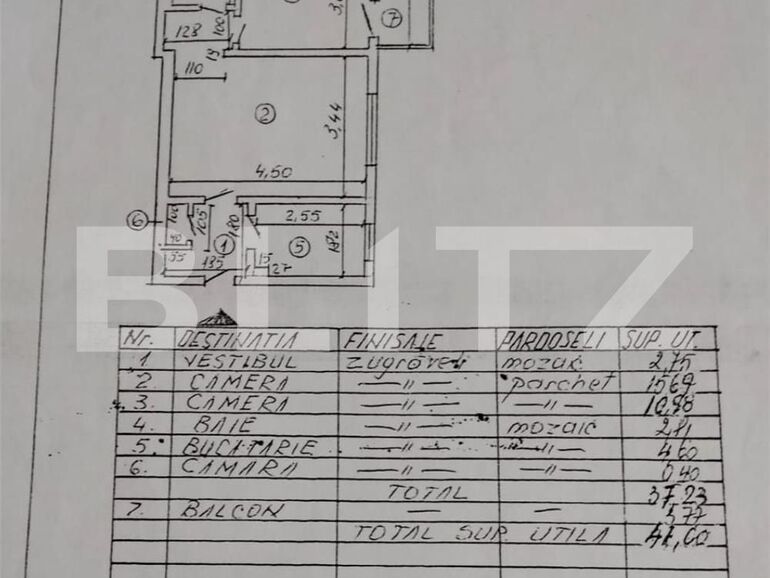 3,0
7
128
100
19
110
2
3,44
4,50
6
100
105
180
2,55
182
40
1
5
55
135
15
27
BLITZ
Nr. DESTINATIA FINISAJE PARDOSELI SUP. UT.
1 VESTIBUL Zugrăveli mozaic 2,75
2 CAMERA —"— parchet 15,69
3. CAMERA —"— —"— 10,98
4. BAIE —"— mozaic 2,81
5. BUCATARIE —"— —"— 4,60
6. CAMARA —"— —"— 0,40
TOTAL 37,23
7. BALCON — — 5,77
TOTAL SUP. UTILA